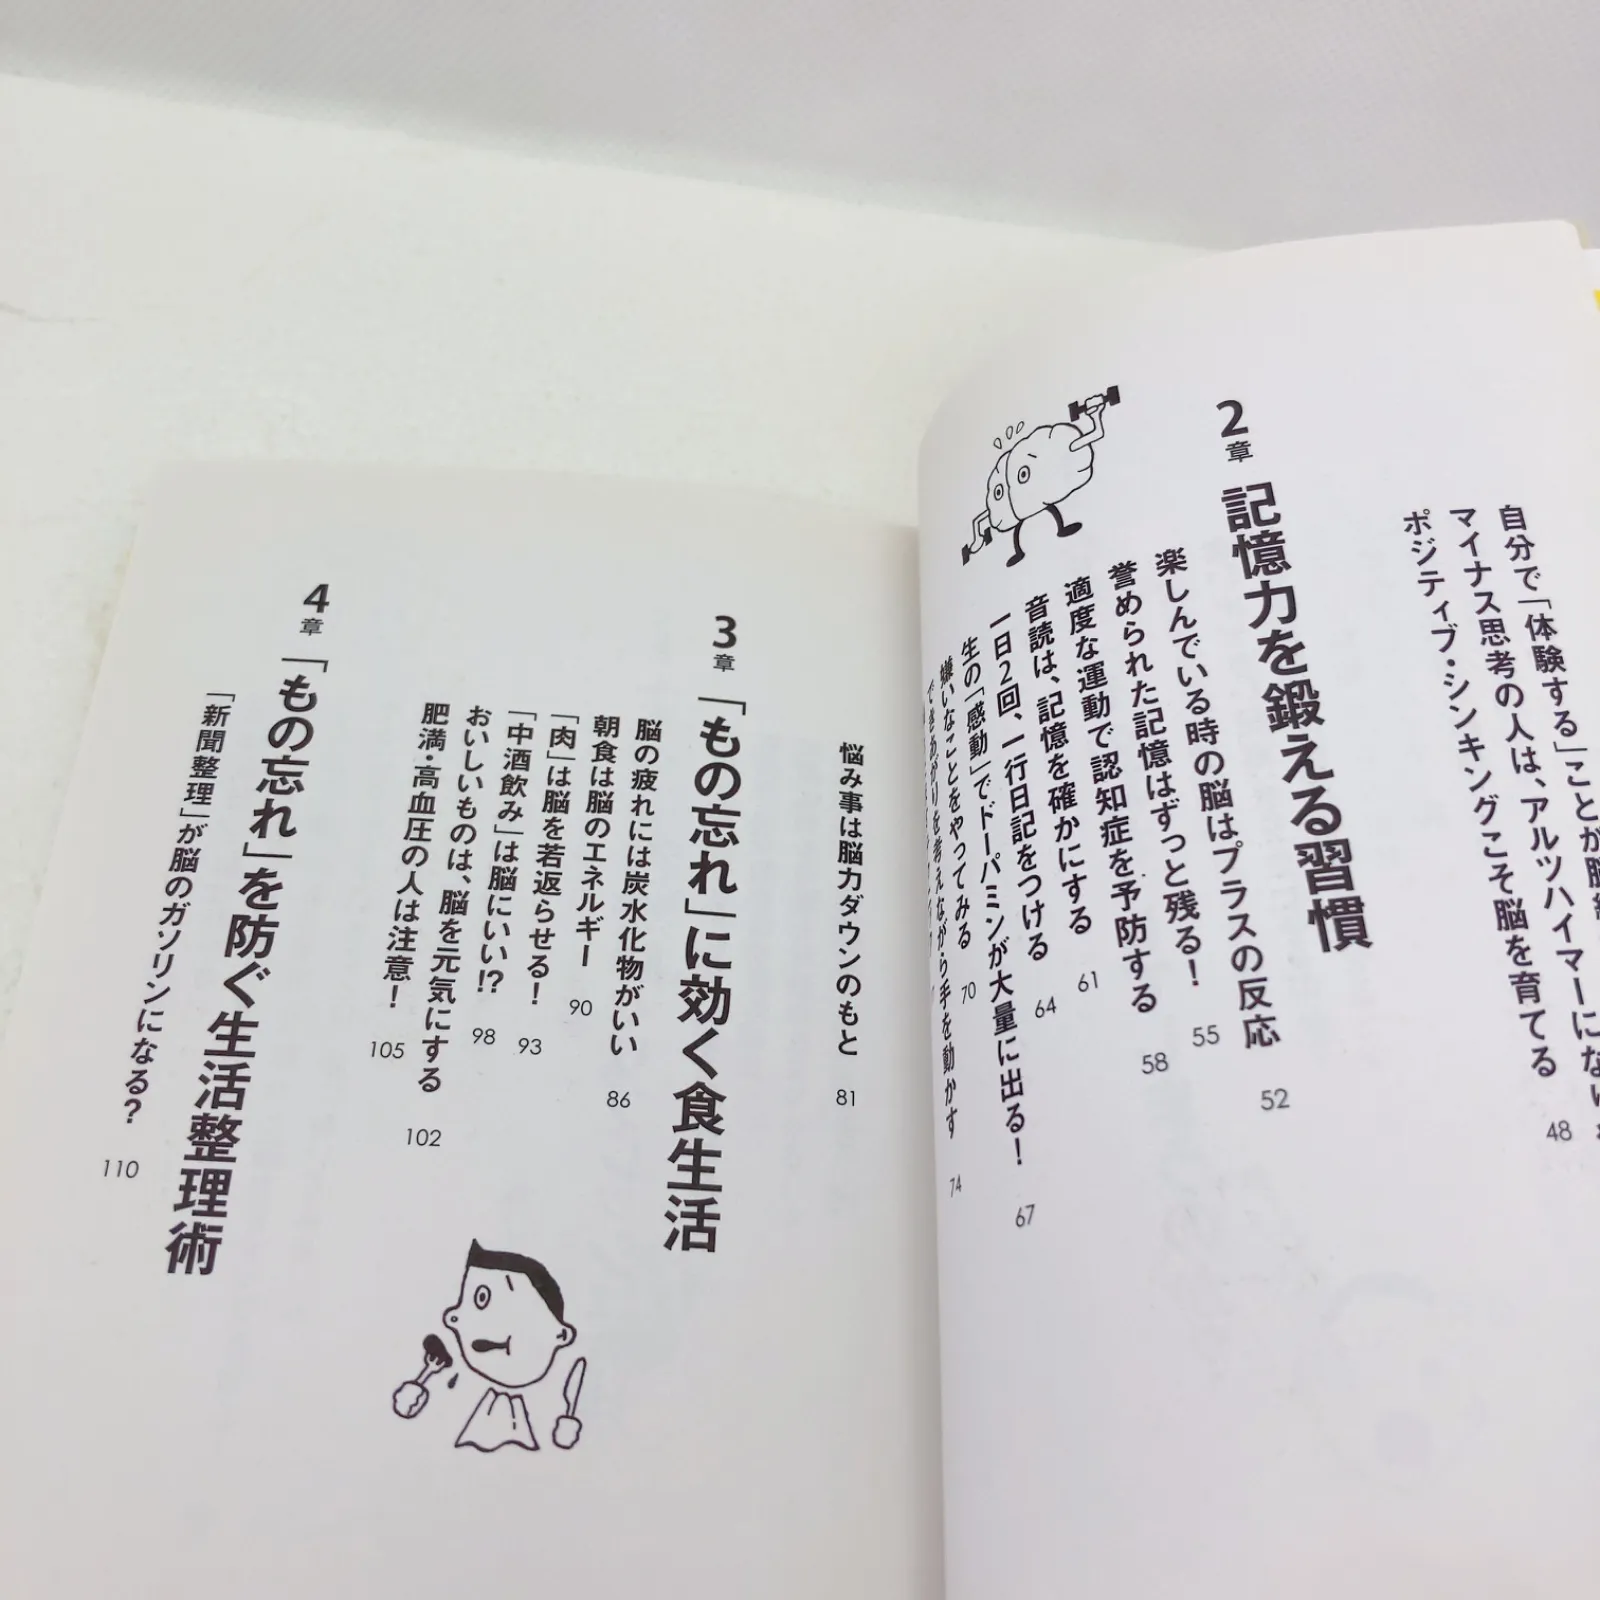 自分で「体験する」ことが脳
マイナス思考の人は、アルツハイマーにな
ポジティブ・シンキングこそ脳を育てる
48
2章 記憶力を鍛える習慣
楽しんでいる時の脳はプラスの反応 52
誉められた記憶はずっと残る! 55
適度な運動で認知症を予防する 58
音読は、記憶を確かにする 61
一日2回、一行日記をつける 64
生の「感動」でドーパミンが大量に出る! 67
嫌いなことをやってみる 70
できあがりを考えながら手を動かす 74
悩み事は脳力ダウンのもと 81
3章 「もの忘れ」に効く食生活
脳の疲れには炭水化物がいい 86
朝食は脳のエネルギー 90
「肉」は脳を若返らせる! 93
「中酒飲み」は脳にいい!? 98
おいしいものは、脳を元気にする 102
肥満・高血圧の人は注意! 105
4章 「もの忘れ」を防ぐ生活整理術
「新聞整理」が脳のガソリンになる? 110